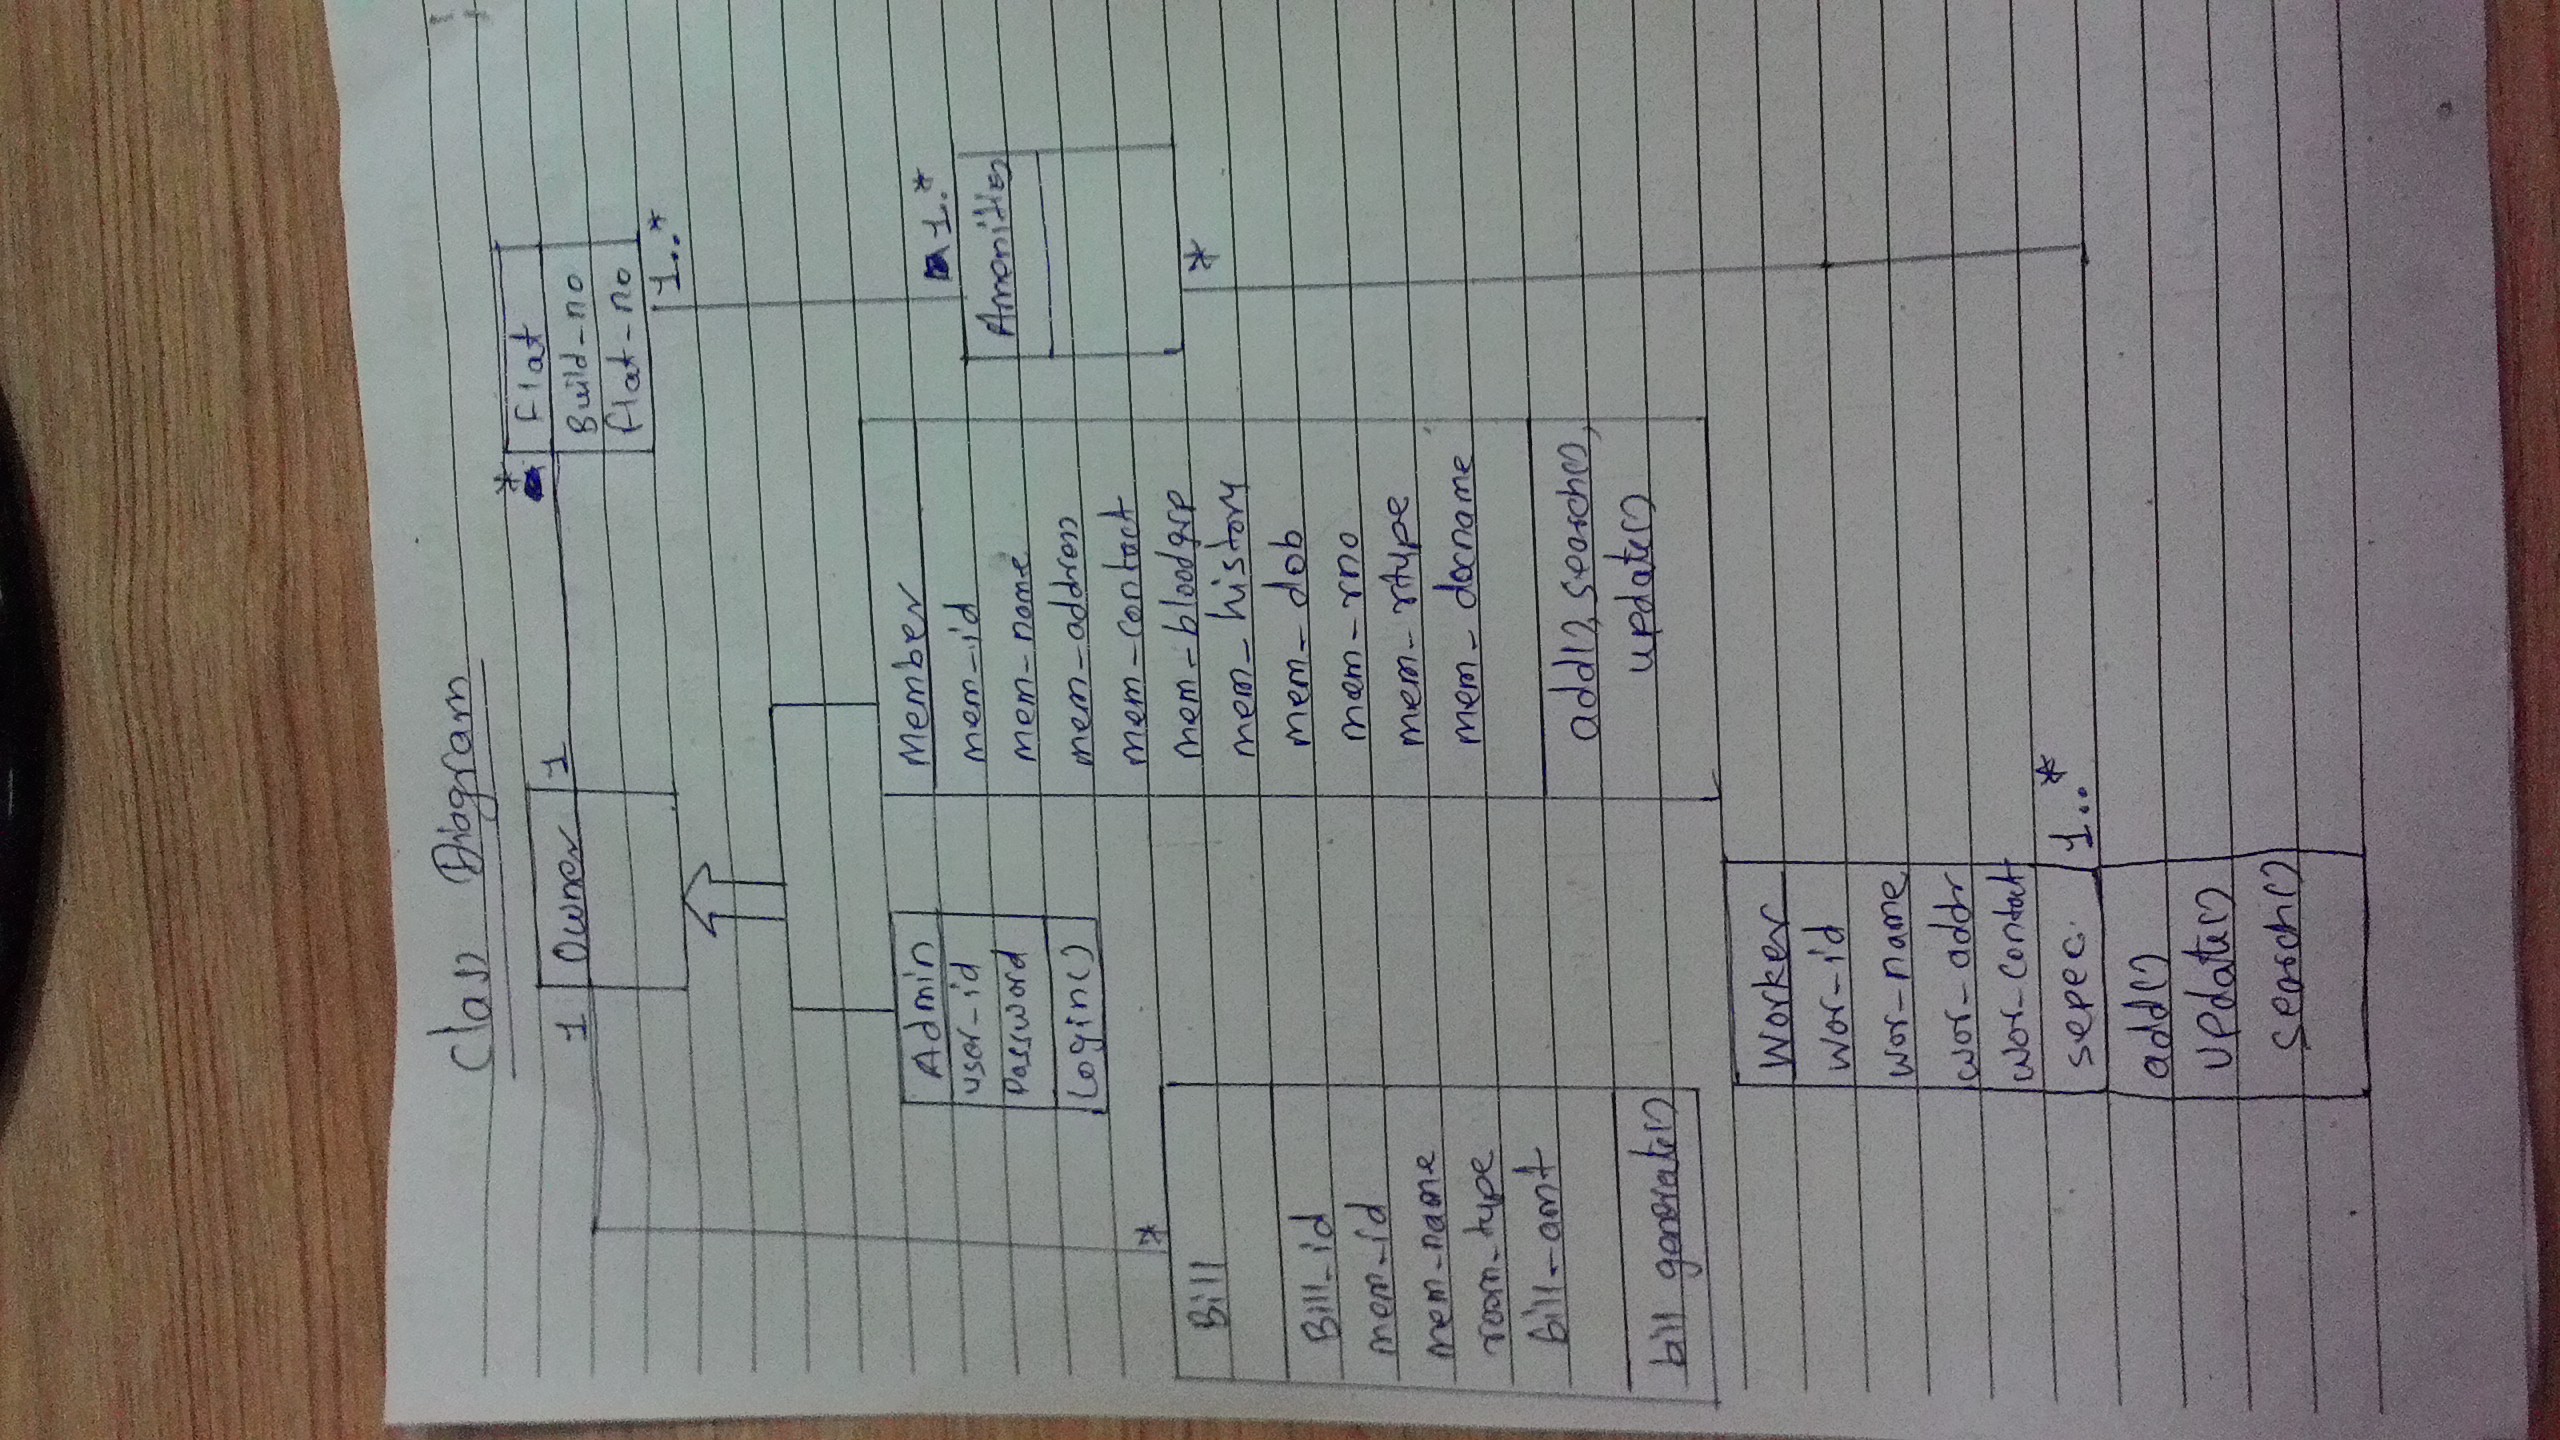 Class Diagram
1 Owner 1
*
Flat
Build-no
flat-no
1..*
Admin
user-id
Password
Login()
Member
mem-id
mem-name
mem-address
mem-contact
mem-bloodgrp
mem-history
mem-dob
mem-rno
mem-rtype
mem-docname
add(), search(),
update()
1.*
Amenities
*
*
Bill
Bill-id
mem-id
mem-name
room-type
bill-amt
bill generate()
Worker
wor-id
wor-name
wor-addr
wor-contact
sepec. 1..*
add()
update()
search()